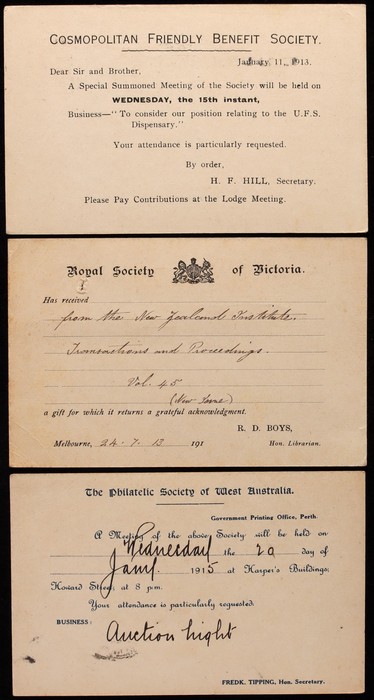 COSMOPOLITAN FRIENDLY BENEFIT SOCIETY.
January 11, 1913.
Dear Sir and Brother,
A Special Summoned Meeting of the Society will be held on
WEDNESDAY, the 15th instant,
Business—"To consider our position relating to the U.F.S.
Dispensary."
Your attendance is particularly requested.
By order,
H. F. HILL, Secretary.
Please Pay Contributions at the Lodge Meeting.
Royal Society of Victoria.
Has received
from the New Zealand Institute.
Transactions and Proceedings.
Vol. 45
(New Issue)
a gift for which it returns a grateful acknowledgment.
R. D. BOYS,
Melbourne, 24-7-13 191 Hon. Librarian.
The Philatelic Society of West Australia.
Government Printing Office, Perth.
A Meeting of the above Society will be held on
Wednesday the 20 day of
Jany 1915 at Harper's Buildings,
Howard Street, at 8 p.m.
Your attendance is particularly requested.
BUSINESS:
Auction night
FREDK. TIPPING, Hon. Secretary.